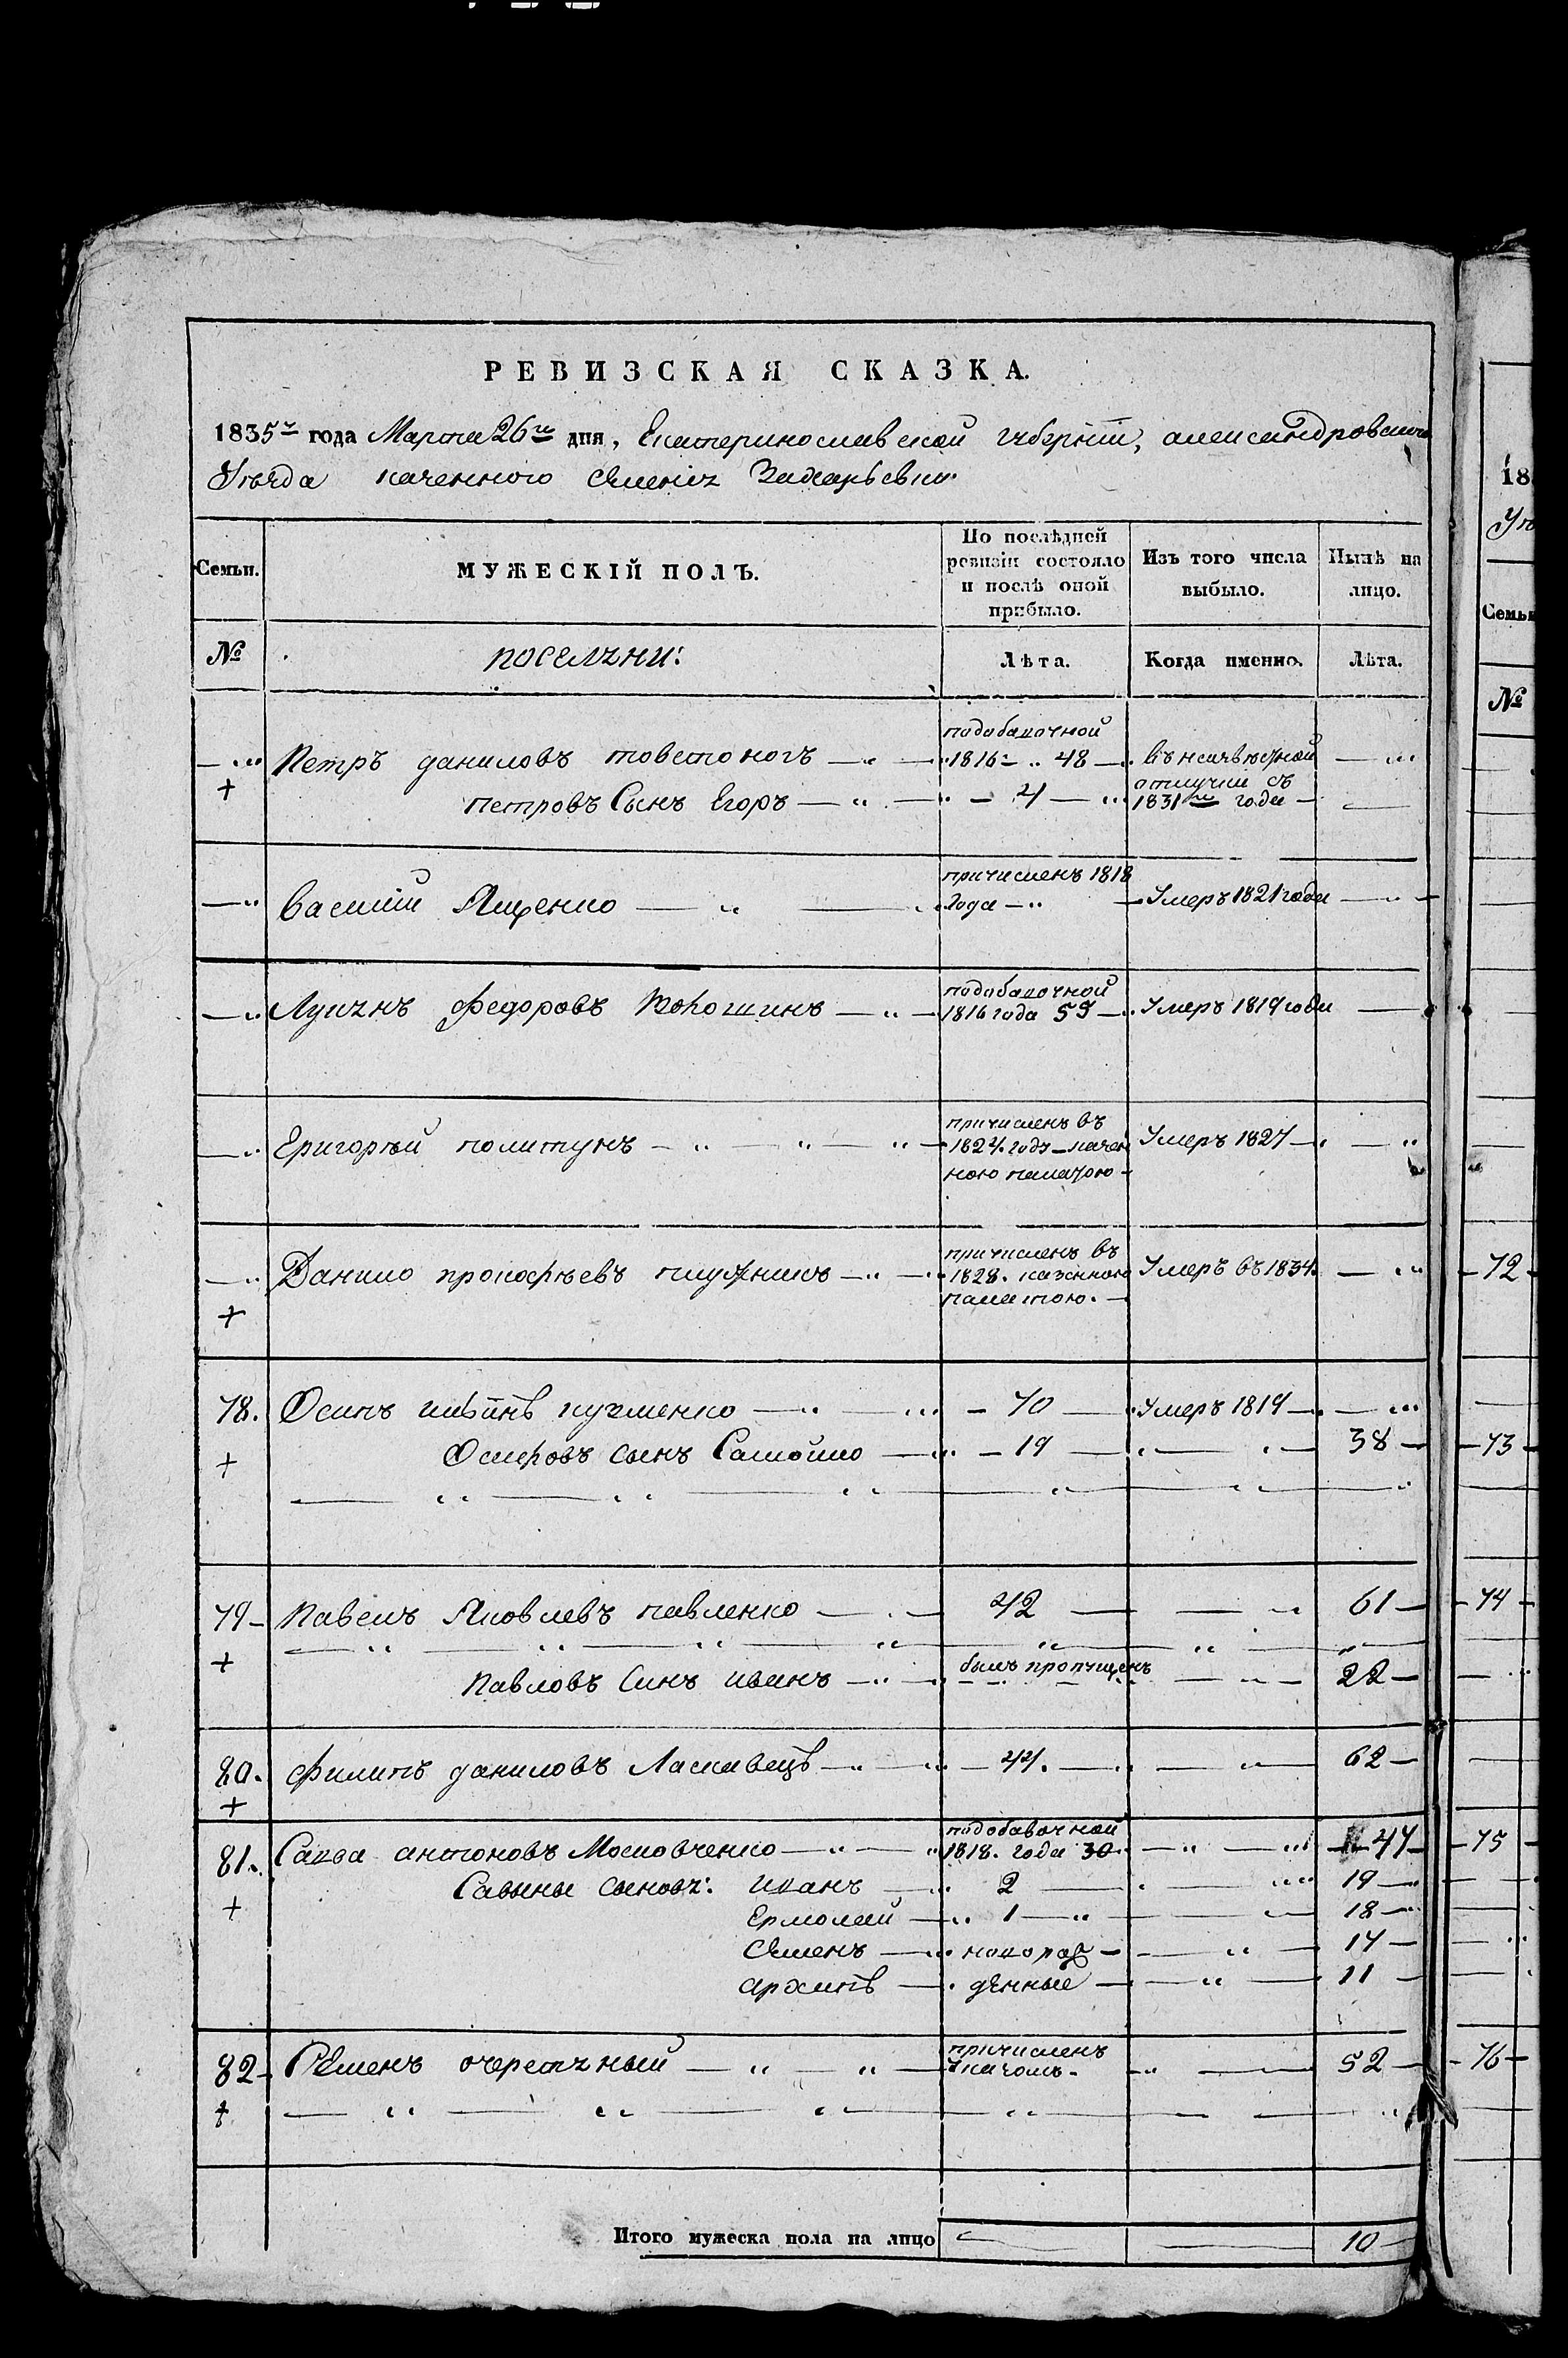 РЕВИЗСКАЯ СКАЗКА.
1835го года Марта 26го дня, Екатеринославской губерніи, александровскаго
Уѣзда казенного селенія
Семьи. МУЖЕСКІЙ ПОЛЪ. По послѣдней ревизіи состояло и послѣ оной прибыло. Изъ того числа выбыло. Нынѣ на лицо.
№ поселяни: Лѣта. Когда именно. Лѣта.
Петръ даниловъ товстоногъ подобавочной 1816 48 въ неизвѣстной отлучки съ 1831го года
+ петровъ Сынъ Егоръ 4
василій Ященко причисленъ 1818 года Умеръ 1821 года
Лукянъ федоровъ подобавочной 1816 года 59 Умеръ 1819 года
Григорій политунъ причисленъ въ 1824 году казенною палатою Умеръ 1827
Данило прокофѣевъ плужникъ причисленъ въ 1828. казенною палатою. Умеръ въ 1834
+
78. Осипъ кузменко 70 Умеръ 1819
+ Осиповъ сынъ Самойло 19 38
79 Павелъ Яковлевъ павленко 42 61
+ Павловъ Синъ иванъ былъ пропущенъ 22
80. филипъ даниловъ Ласкавецъ 44. 62
+
81. Савва антоновъ Московченко подобавочной 1818. года 30 47
Савины сыновя: иванъ 2 19
+ Ермолай 1 18
семенъ новорож 14
архипъ денные 11
82 Семенъ очеретяный причисленъ указомъ. 52
+
Итого мужеска пола на лицо 10
18
Семьи
№
72
73
74
75
76